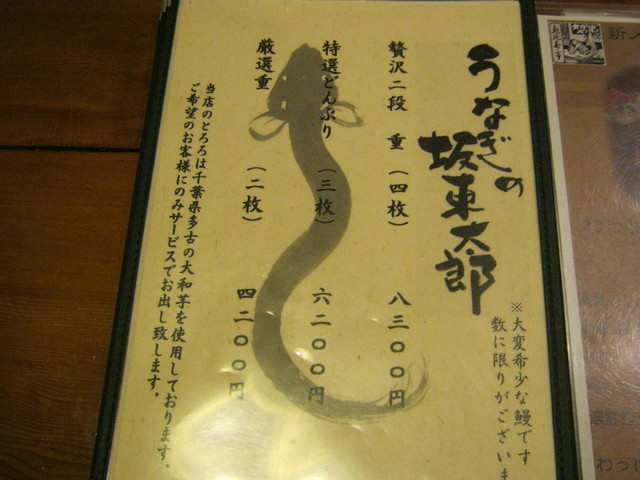 うなぎの
坂東太郎
※大変希少な鰻です
数に限りがございま
贅沢二段 重 （四枚） 八三〇〇円
特選どんぶり （三枚） 六二〇〇円
厳選重 （二枚） 四二〇〇円
当店のとろろは千葉県多古の大和芋を使用しております。
ご希望のお客様にのみサービスでお出し致します。
新メ